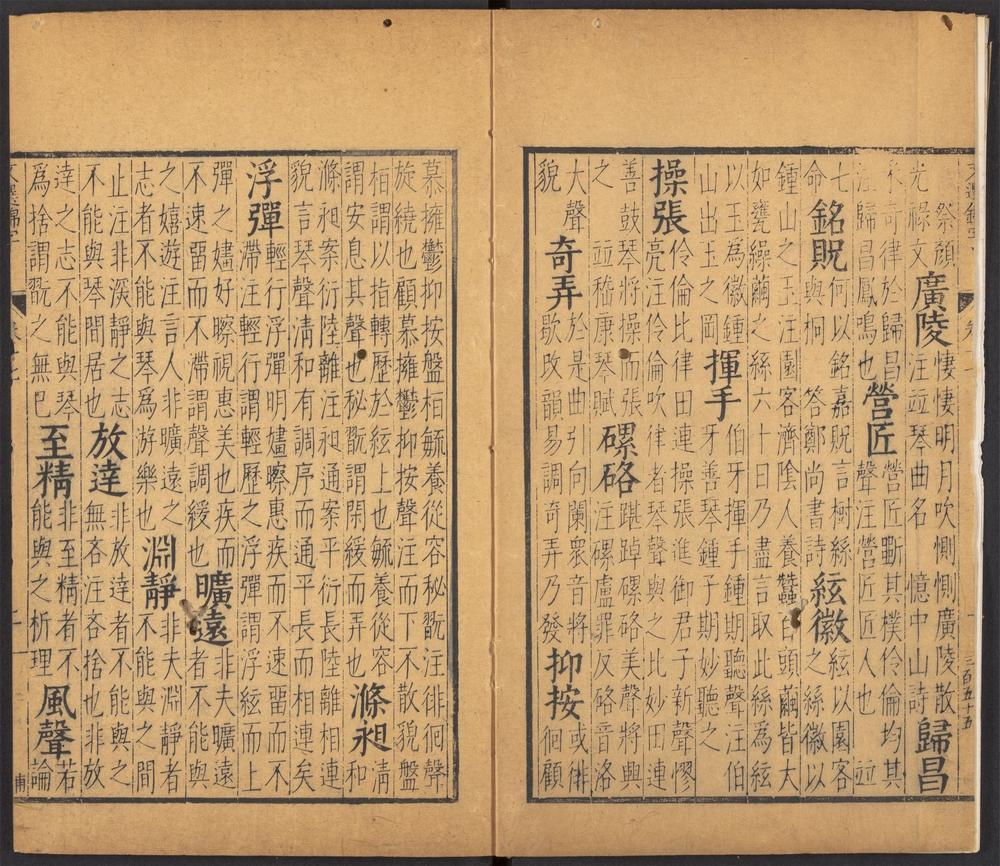 祭顏
光祿文
廣陵
悽悽明月吹惻惻廣陵散
注並琴曲名 憶中山詩
歸昌
采奇律於歸昌
注歸昌鳳鳴也
營匠
營匠斲其樸伶倫均其
聲注營匠匠人也 並
七
命
銘貺
何以銘嘉貺言樹絲
與桐 答鄭尚書詩
絃徽
絃以園客
之絲徽以
鍾山之玉注園客濟陰人養蠶百頭繭皆大
如甕繰繭之絲六十日乃盡言取此絲為絃
以玉為徽鍾
山出玉之岡
揮手
伯牙揮手鍾期聽聲注伯
牙善琴鍾子期妙聽之
操張
伶倫比律田連操張進御君子新聲憀
亮注伶倫吹律者琴聲與之比妙田連
善鼓琴將操而張
之 並嵇康琴賦
磥硌
踸踔磥硌美聲將興
注磥盧罪反硌音洛
大聲
貌
奇弄
於是曲引向闌衆音將
歇改韻易調奇弄乃發
抑按
或徘
徊顧
三百五十五
慕擁鬱抑按盤桓毓養從容秘翫注徘徊聲
旋繞也顧慕擁鬱抑按聲注而下不散貌盤
桓謂以指轉歷於絃上也毓養從容
謂安息其聲也秘翫謂閑緩而弄也
滌昶
清
和
滌昶案衍陸離注昶通案平衍長陸離相連
貌言琴聲清和有調序而通平長而相連矣
浮彈
輕行浮彈明嫿䁲惠疾而不速留而不
滯注輕行謂輕歷之浮彈謂浮絃而上
彈之嫿好䁲視惠美也疾而
不速留而不滯謂聲調緩也
曠遠
非夫曠遠
者不能與
之嬉遊注言人非曠遠之
志者不能與琴為游樂也
淵靜
非夫淵靜者
不能與之間
止注非深靜之志
不能與琴間居也
放達
非放達者不能與之
無吝注吝捨也非放
達之志不能與琴
為捨謂翫之無已
至精
非至精者不
能與之析理
風聲
若
論